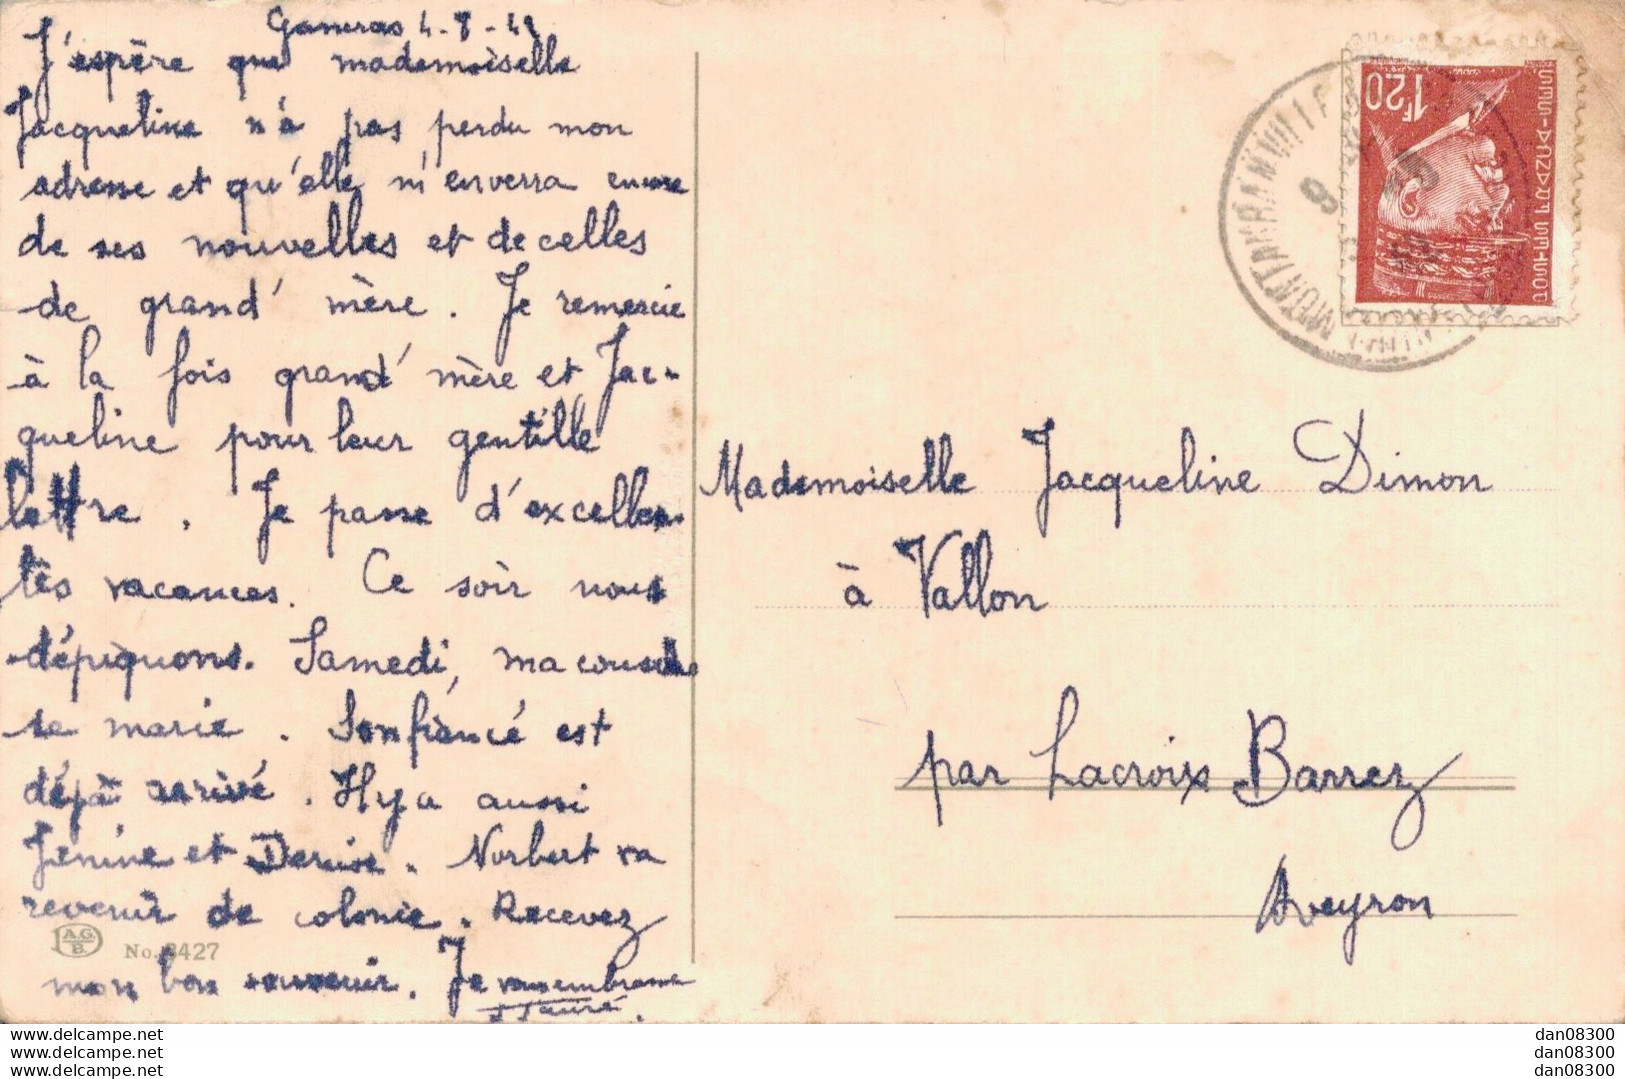 4-8-42
J'espère que mademoiselle
Jacqueline n'a pas perdu mon
adresse et qu'elle m'enverra encore
de ses nouvelles et de celles
de grand' mère. Je remercie
à la fois grand' mère et Jac-
queline pour leur gentille
lettre. Je passe d'excellen-
tes vacances. Ce soir nous
dépiquons. Samedi, ma cousine
se marie. Son fiancé est
déjà arrivé. Il y a aussi
Jenine et Denise. Norbert va
revenir de colonie. Recevez
mon bon souvenir. Je vous embrasse
A.G.
B.
No. 8427
1F20
POSTES FRANÇAISES
Mademoiselle Jacqueline Dimon
à Vallon
par Lacroix Barrez
Aveyron
www.delcampe.net
www.delcampe.net
www.delcampe.net
dan08300
dan08300
dan08300